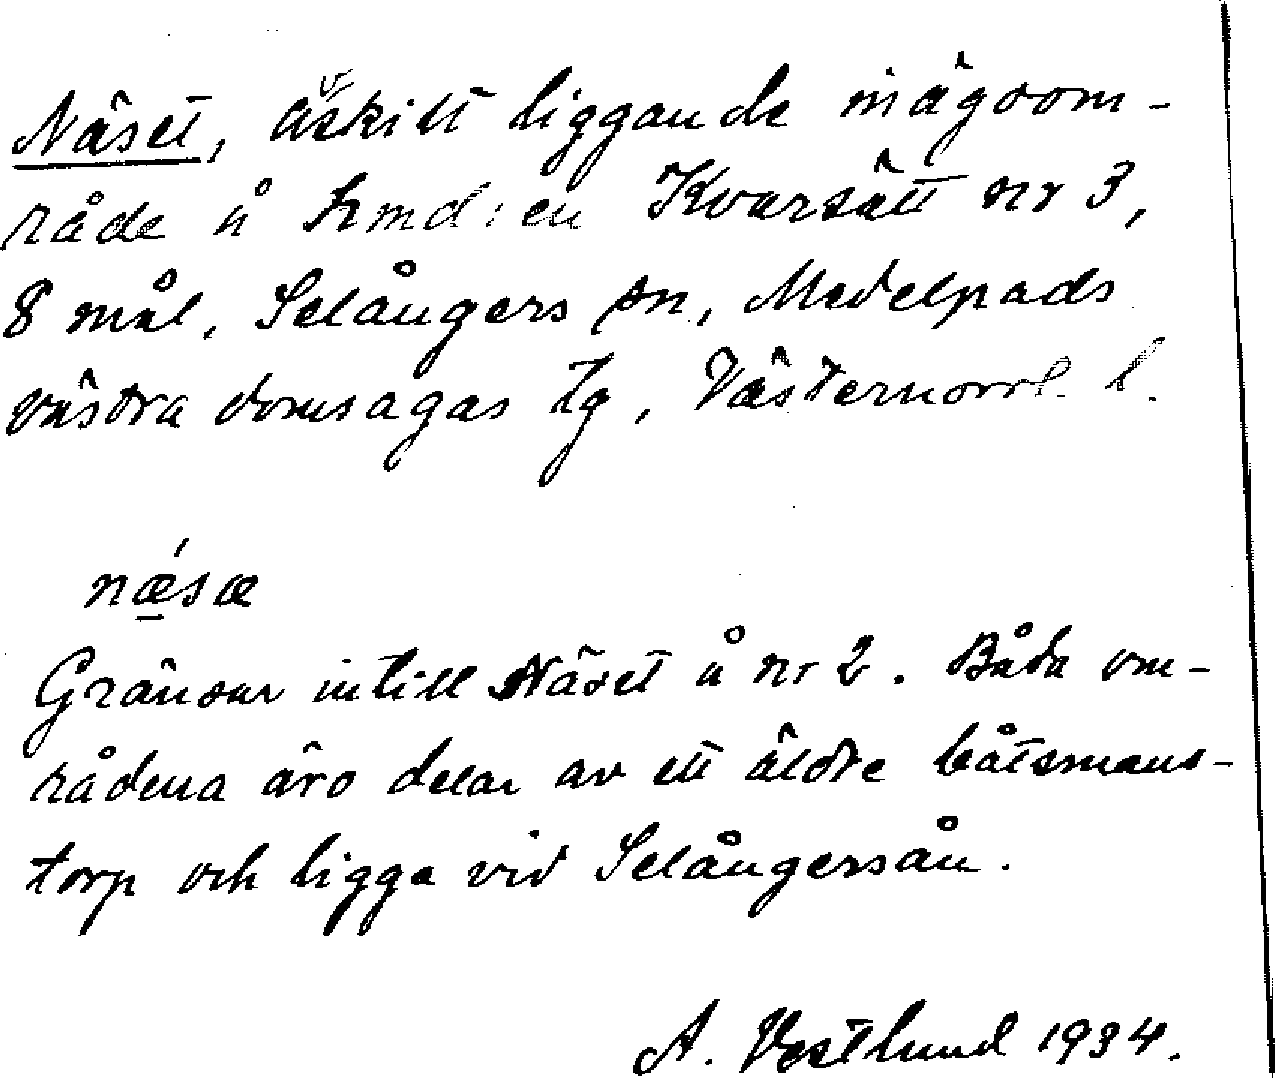 Näset, åskilt liggande inägoom-
råde å hmd:en Kvarsätt nr 3,
8 mål, Selångers sn, Medelpads
västra domsagas tg, Västernorrl. l.
nǽ̱sæ
Gränsar intill Näset å nr 2. Båda om-
rådena äro delar av ett äldre båtsmans-
torp och ligga vid Selångersån.
A. Vestlund 1934.